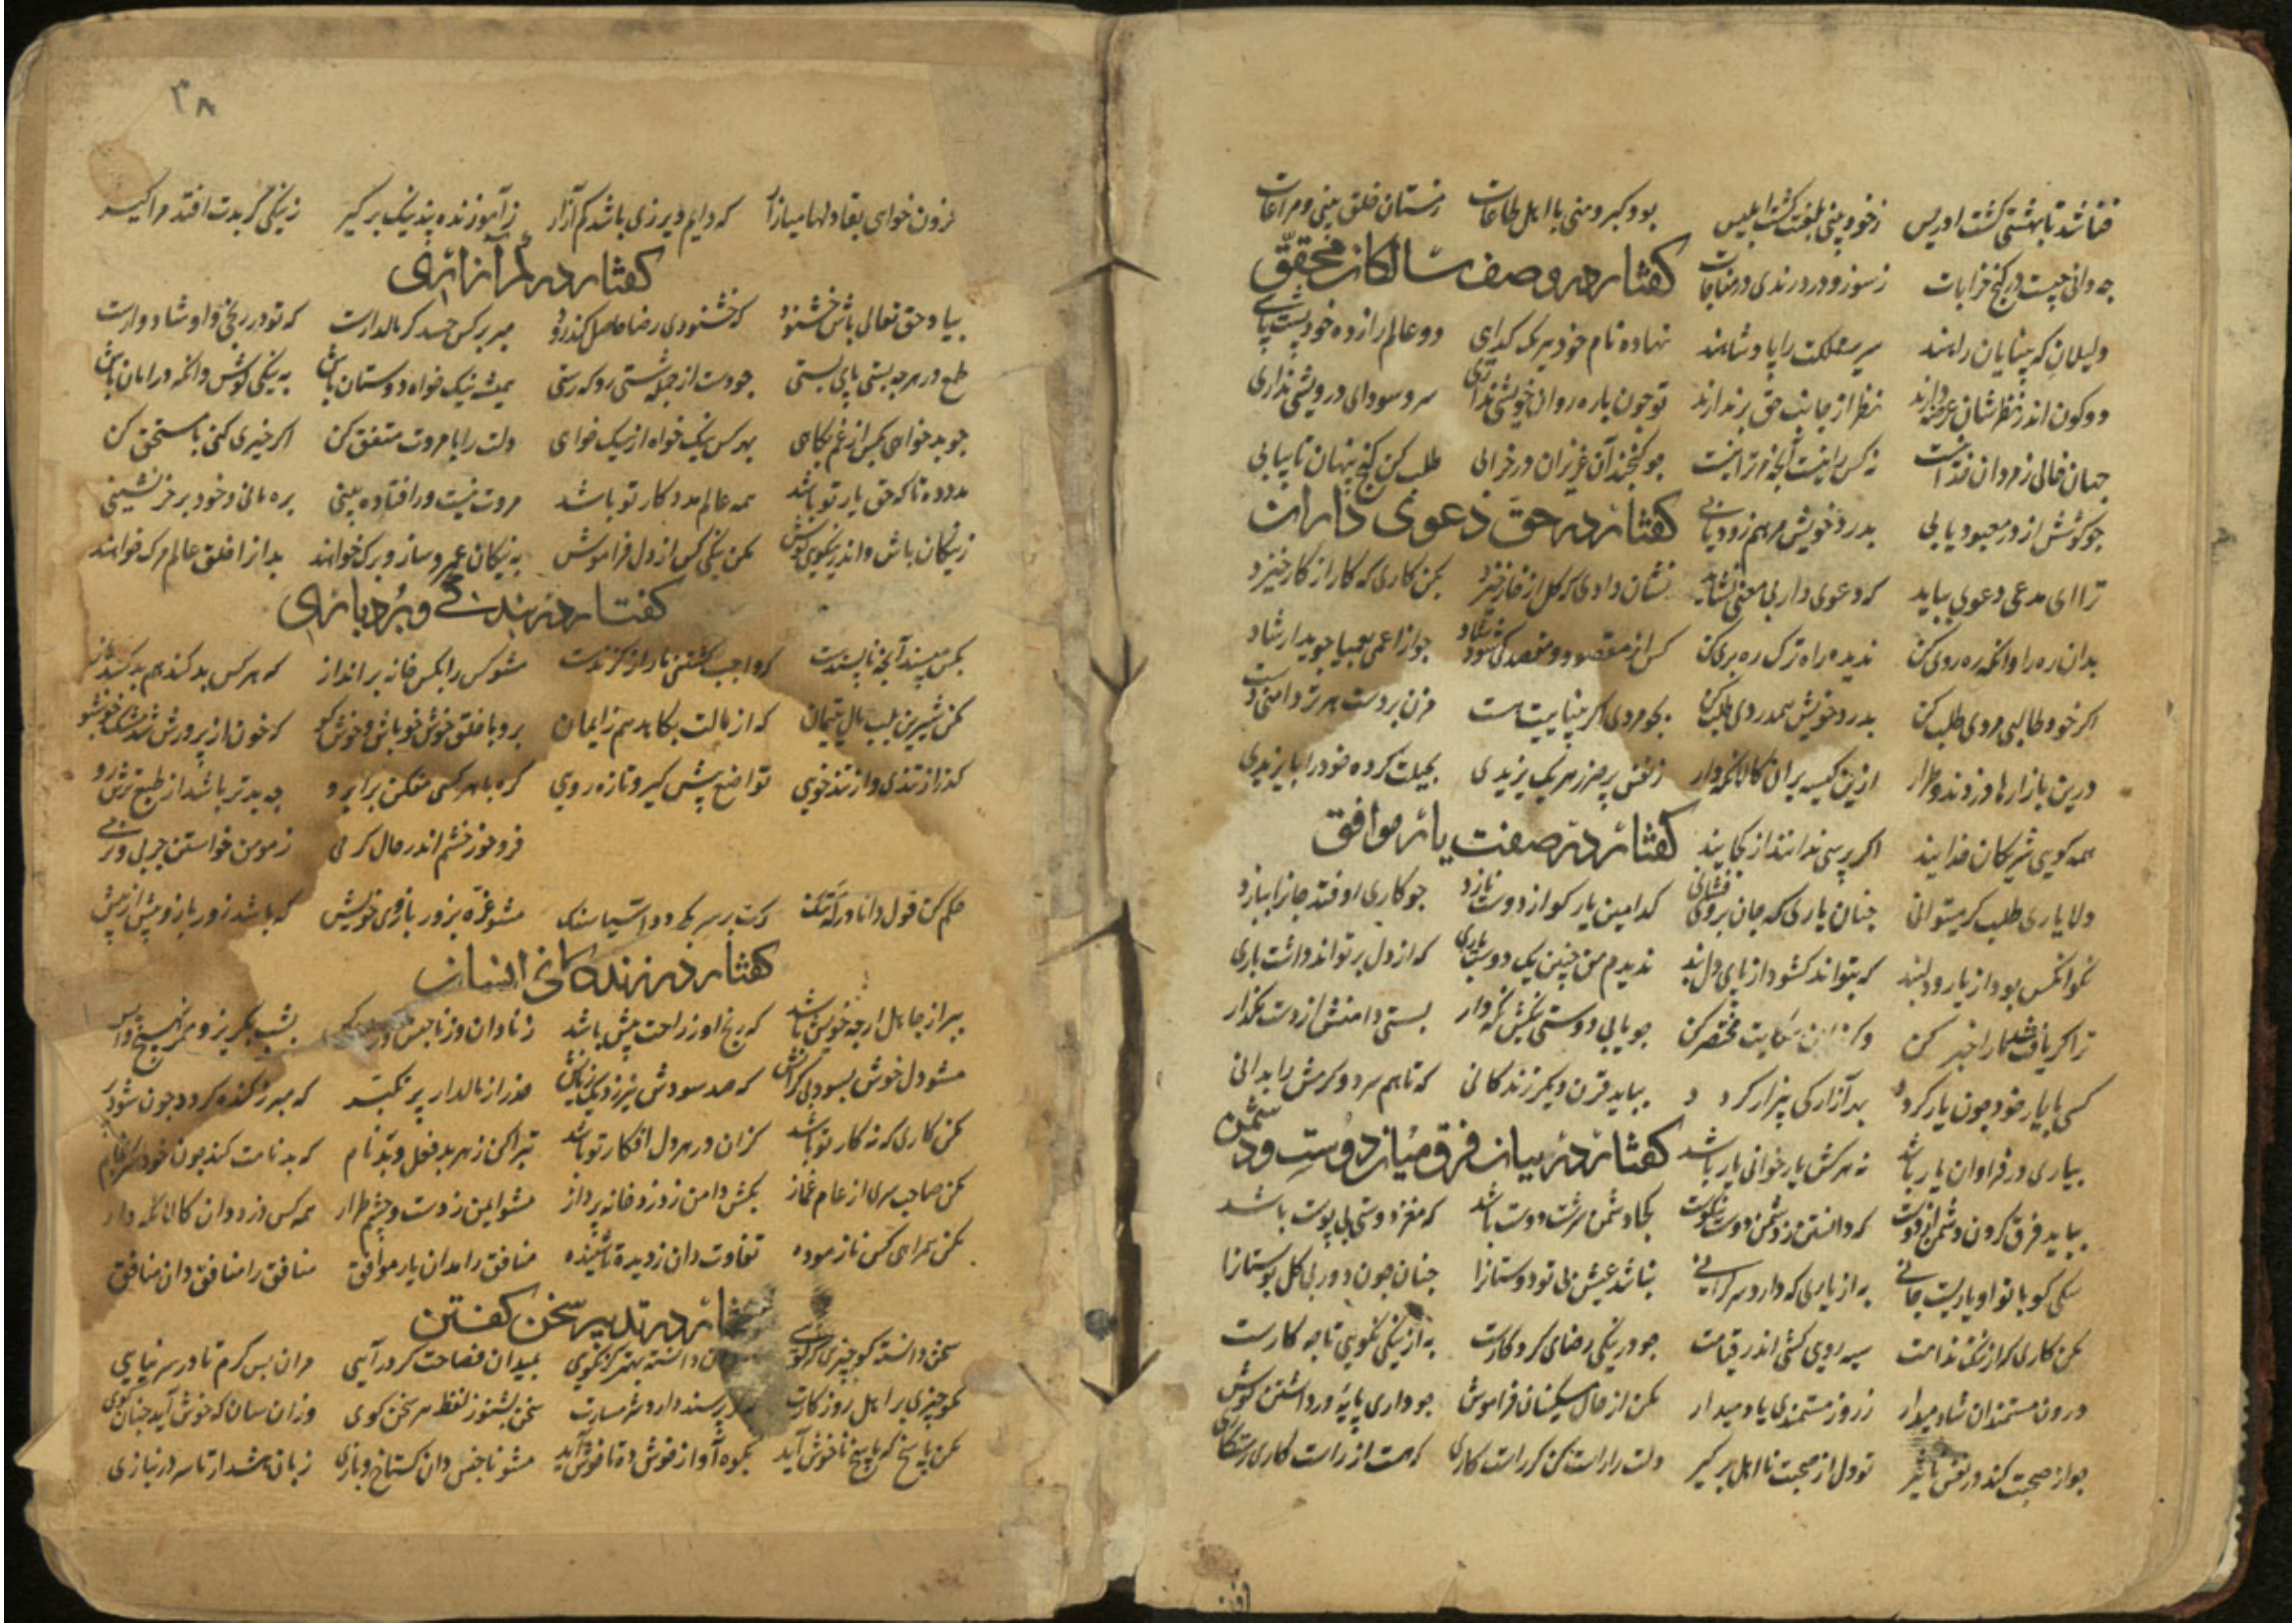 فنا شد تا بهشتی گشت ادریس ز خود بینی بلعنت گشت ابلیس بود کبر و منی با اهل طاعات ز مستان خلق بینی و مراعات
چه دانی چیست در کنج خرابات ز سوز و درد رندی در مناجات گفتار در وصف سالکان محقق
دلیلان که بینایان راهند سریر مملکت را پادشاهند نهاده نام خود هر یک گدای دو عالم را زده خود پشت پای
دو کون اندر نظرشان عرضه دارند نظر از جانب حق بر ندارند تو چون پاره روان خویشی نداری سر و سودای درویشی نداری
جهان خالی ز مردان خدا نیست نه کس را نیست آنچه مر ترا نیست چو گنجند آن عزیزان در خرابی طلب کن گنج پنهان تا بیابی
چو کوشش از در معبود یابی بدرد خویش مرهم زود یابی گفتار در حق دعوی داران
ترا ای مدعی دعوی بباید که دعوی دار بی معنی نشاید نشان دادی که گل از خار خیزد بکن کاری که کار از کار خیزد
بدان ره را وانگه ره روی کن ندیده راه ترک ره بری کن کس از مقصود و مقصد کی شود شاد چو از اعمی بعمیا جوید ارشاد
اگر خود طالبی مردی طلب کن بدرد خویش همدردی طلب کن بجو مردی اگر بیناییت هست مزن بر دست هر تر دامنی دست
درین بازارها دزدند و طرار ازین کیسه بران کالا نگه دار ز نفس پر ز هر یک یزیدی بحیلت کرده خود را بایزیدی
همه گویی شریکان خدایند اگر پرسی ندانند از کجایند گفتار در صفت یار موافق
دلا یاری طلب گر میتوانی چنان یاری که جان بروی فشانی کدامین یار کو از دوست نازد چو کاری اوفتد جان را ببازد
نکو آنکس بود از یار و دلبند که بتواند گشود از پای دل بند ندیدم من چنین یک دوست باری که از دل بر تواند داشت باری
گر یافتی ما را خبر کن شکایت مختصر کن چو یابی دوستی نیکش نگه دار بسستی دامنش از دست مگذار
کسی با یار خود چون یار گردد بد آزار کی بیزار گردد بباید قرن دیگر زندگانی که تا هم سرد و گرمش را بدانی
بیاری در فراوان یار باشد نه هر کش یار خوانی یار باشد گفتار در بیان فرق میان دوست و دشمن
بباید فرق کردن دشمن از دوست که دانستن ز دشمن دوست نیکوست کجا دشمن سرشت دوست باشد که مغز دوستی بی پوست باشد
سگی کو با تو او یاریست جانی به از یاری که دارد سر گرانی نباشد عیش بی تو دوستان را چنان چون دور بی گل بوستان را
مکن کاری کزان گشت ندامت سیه رویی کشی اندر قیامت چو در نیکی رضای کردگارست به از نیکی نکویی تا چه کارست
درون مستمندان شاد میدار ز روز مستمندی یاد میدار مکن از حال مسکینان فراموش چو داری پایه در داشتن کوش
چو از صحبت کند در نفس تاثیر تو دل از صحبت نا اهل برگیر دلت را راست کن گر راست کاری که هست از راست کاری رستگاری
۳۸
فزون خواهی بقا دلها میازار که دایم دیر زی باشد کم آزار ز آموزنده پند نیک برگیر ز نیکی گر بدت افتد مرا گیر
گفتار در کم آزاری
بیا و حق تعالی باش خشنود که خشنودی رضا حاصل کند زود مبر بر کس حسد گر مالدارست که تو در رنجی و او شادوارست
طمع در هر چه بستی پای بستی چو دست از جمله شستی رو که رستی همیشه نیک خواه دوستان باش به نیکی کوش وانگه در امان باش
چو بد خواهی کس از غم بکاهی بهر کس نیک خواه ار نیک خواهی دلت را با مروت متفق کن اگر خیری کنی با مستحق کن
مدد ده تا که حق یار تو باشد همه عالم مددکار تو باشد مروت نیست ور افتاده بینی بره مانی و خود بر خر نشینی
ز نیکان باش و اندر نیکوی کوش مکن نیکی کس از دل فراموش به نیکان عمر و ساز و برگ خواهند بدان را خلق عالم مرگ خواهند
گفتار در بندگی و بردباری
بکس مپسند آنچه ناپسندست که واجب کشتن مار از گزندست مشو کس را بکس خانه برانداز که هر کس بد کند هم بد کشد باز
مکن شیرین بلب مال یتیمان که از مالت بکاهد هم ز ایمان برو با خلق خوش خو باش و خوش گو که خون از پرورش شد مشک خوشبو
گذر از تندی و از تند خویی تواضع پیش گیر و تازه رویی گره با هر کسی مفکن بر ابرو چه بدتر باشد از طبع ترش رو
فرو خور خشم اندر حال گرمی ز مومن خواستن چربی و نرمی
حکم کن قول دانا ور گه تنگ گرت بر سر بگردد آسیا سنگ مشو غره بزور بازوی خویش که باشد زور بازو بیش از بیش
گفتار در زندگانی انسان
ببر از جاهل ار چه خویش باشد که رنج او ز راحت بیش باشد ز نادان وز ناجنس بشب بگریز و هیچ
مشو دل خوش بسود بی کرانش که صد سودش نیرزد یک زیانش حذر از مالدار پر تکبر که مبرز گنده گردد چون شود پر
مکن کاری که نه کار تو باشد کزان در هر دل افکار تو باشد تبرا کن ز هر بد فعل و بد نام که بد نامت کند چون خود سرانجام
مکن صاحب سری از عام غماز بکش دامن ز دزد خانه پرداز مشو ایمن ز دست و چشم طرار همه کس دزد دان کالا نگه دار
مکن همراهی کس ناز موده تفاوت دان ز دیده تا شنیده منافق را مدان یار موافق منافق را منافق دان منافق
در تدبیر سخن گفتن
سخن دانسته گو چیزی که گویی دانسته بهتر گر نگویی بمیدان فصاحت گر در آیی مران بس گرم تا در سر نیایی
مگو چیزی بر اهل روزگارت پرسند دارد شرمسارت سخن بشنو ز لفظ هر سخن گوی وزان سان که خوش آید چنان گوی
مکن پاسخ که پاسخ ناخوش آید بکوه آواز خوش ده تا خوش آید مشو ناجنس دان گستاخ و بازی زبان هشدار تا سر در نبازی